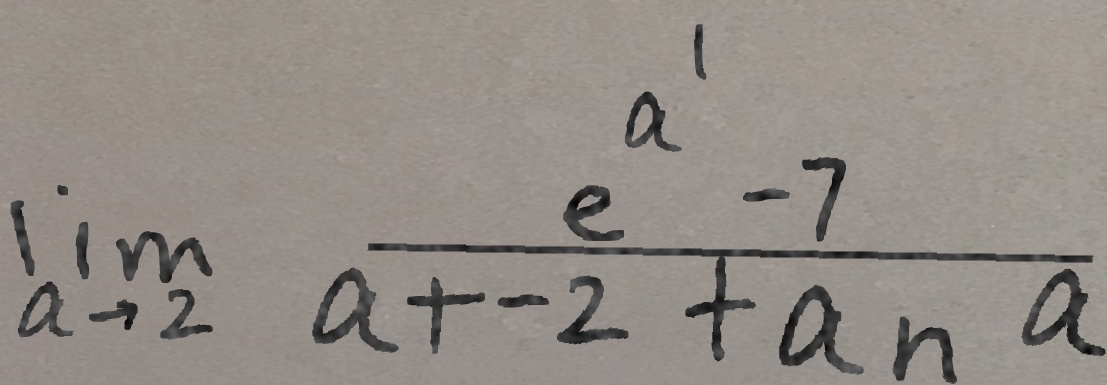 \lim_{a \to 2} \frac{e^{a^1} - 7}{a + -2 \tan a}